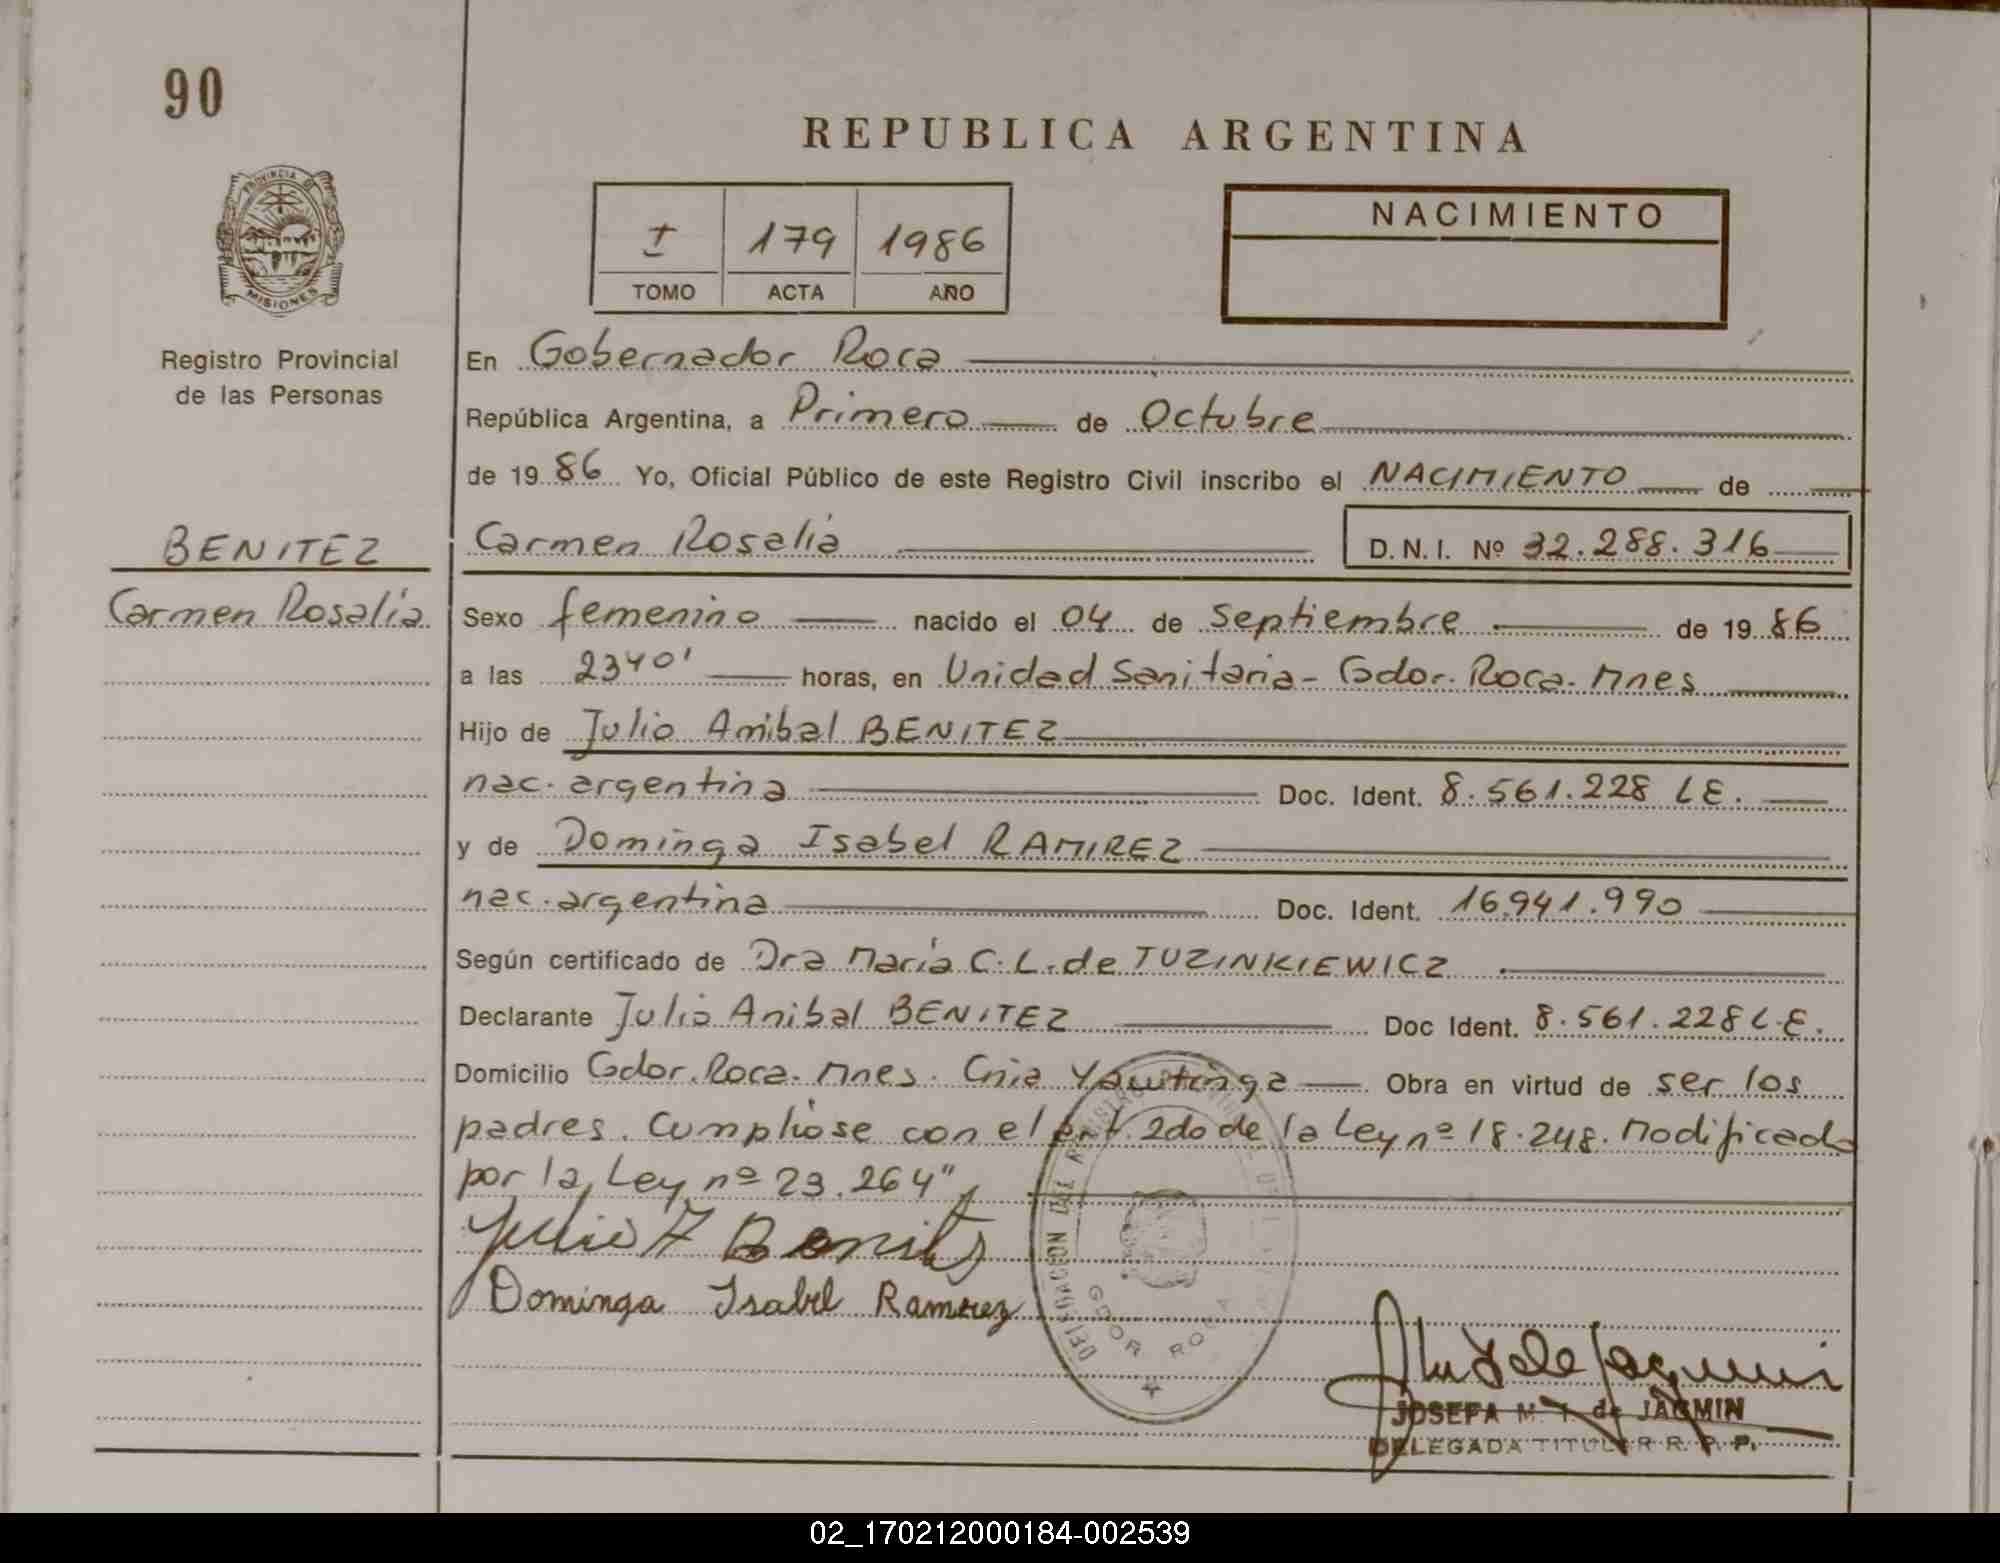 90
REPUBLICA ARGENTINA
PROVINCIA DE
MISIONES
Registro Provincial
de las Personas
I 179 1986
TOMO ACTA AÑO
NACIMIENTO
En Gobernador Roca
República Argentina, a Primero de Octubre
de 19 86 Yo, Oficial Público de este Registro Civil inscribo el NACIMIENTO de
BENITEZ
Carmen Rosalia
Carmen Rosalia D.N.I. Nº 32.288.316
Sexo femenino nacido el 04 de Septiembre de 19 86
a las 2340' horas, en Unidad Sanitaria - Gdor. Roca. Mnes
Hijo de Julio Anibal BENITEZ
nac. argentina Doc. Ident. 8.561.228 LE.
y de Dominga Isabel RAMIREZ
nac. argentina Doc. Ident. 16.941.990
Según certificado de Dra Maria C. L. de TUZINKIEWICZ
Declarante Julio Anibal BENITEZ Doc Ident. 8.561.228 L.E.
Domicilio Gdor. Roca. Mnes. Cnia Obra en virtud de ser los
padres. Cumpliose con el art. 2do de la Ley nº 18.248. Modificado
por la Ley nº 23.264"
Julio A Benitez
Dominga Isabel Ramirez
GDOR ROCA
JOSEFA M. T. de JACMIN
DELEGADA TITULAR R. P. P.
02_170212000184-002539